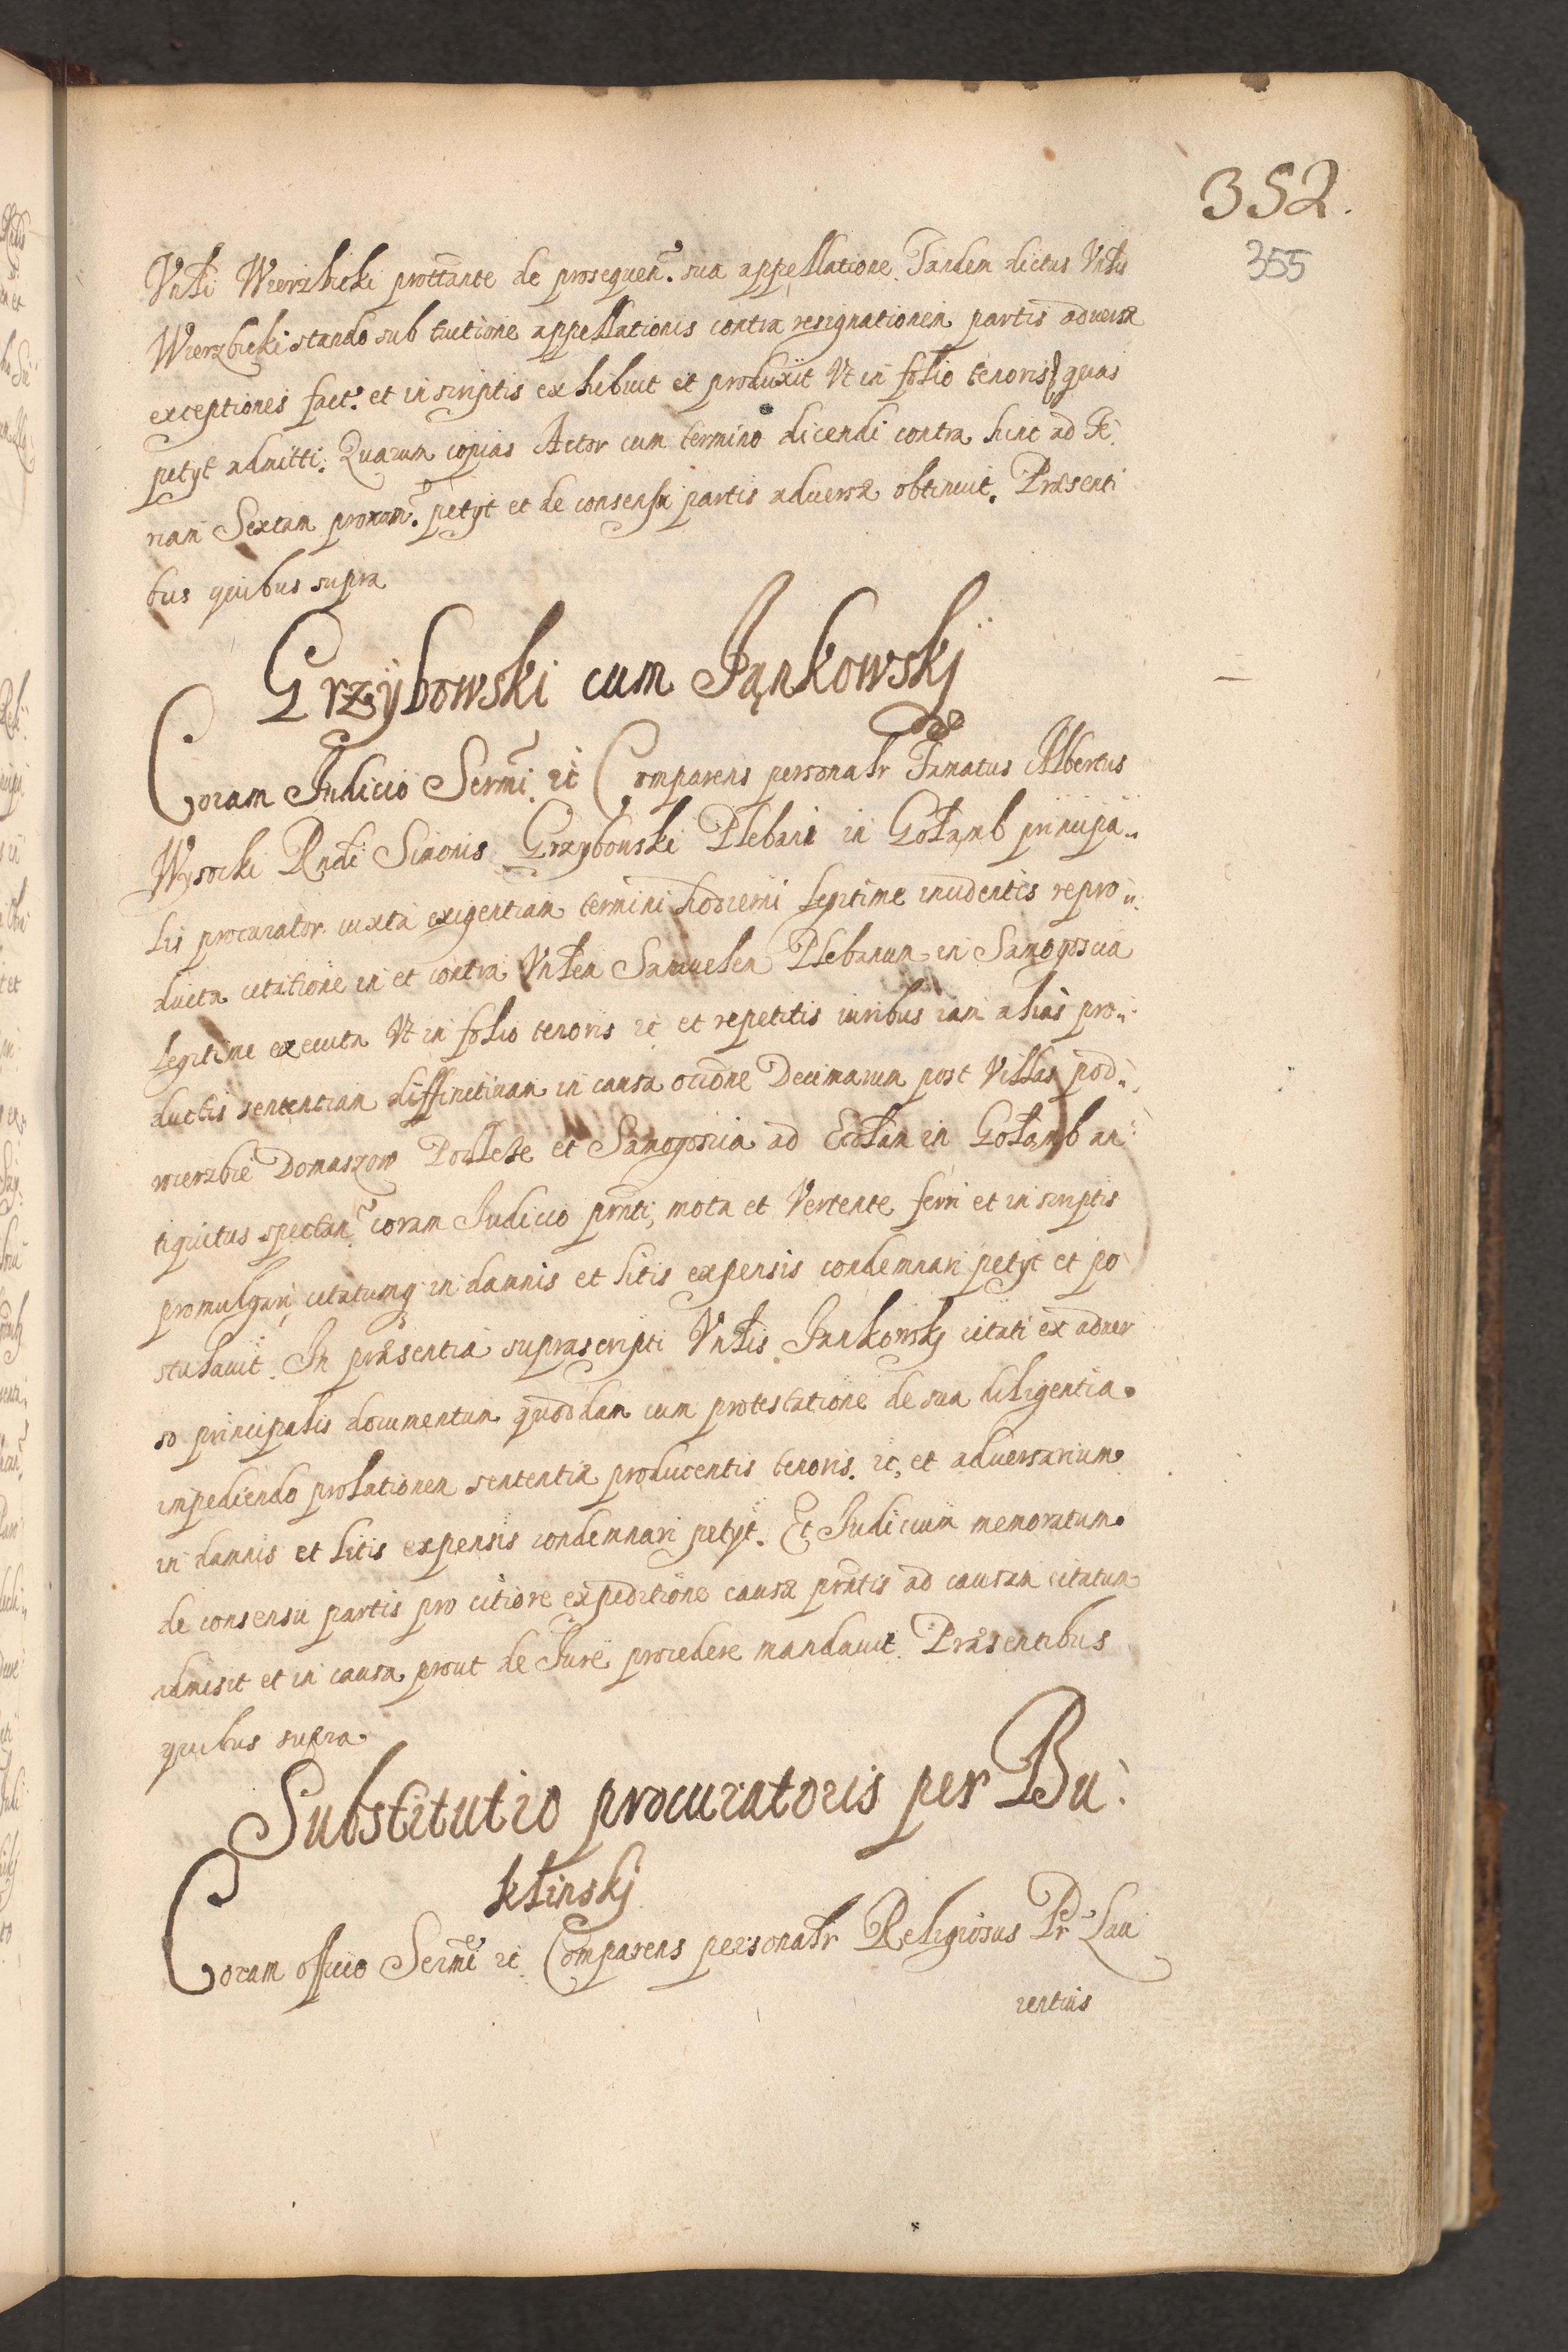 352.
355
Vnłi Wierzbicki prottante de prosequen. sua appellatione. Tandem dictus Vnłis
Wierzbicki stando sub tuitione appellationis contra resignationem partis adversæ
exceptiones fact. et in scriptis exhibuit et produxit Vt in folio tenoris quas
petyt admitti. Quarum copias Actor cum termino dicendi contra hinc ad Fe:
riam Sextam proxam. petyt et de consensu partis adversæ obtinuit. Præsenti
bus quibus supra
Grzybowski cum Jąnkowskj
Coram Judicio Sermi. ic Comparens personalr Famatus Albertus
Wysocki Rndi Simonis Grzybowski Plebani in Gołąmb principa„
lis procurator iuxta exigentiam termini hodierni legitime incidentis repro„
ducta citatione in et contra Vnłem Samuelem Plebanum in Samogoscia
legitime executa Vt in folio tenoris ic et repetitis iuribus iam alias pro„
ductis sententiam diffinitivam in causa otione Decimarum post Villas pod„
wierzbie Domaszow Podłeże et Samogoscia ad Ecclam in Gołąmb an:
tiquitus spectan. coram Judicio prnti, mota et Vertente ferri et in scriptis
promulgari citatumq in damnis et litis expensis condemnari petyt et po
stulavit. In præsentia suprascripti Vnłis Jankowskj citati ex adver
so principalis documentum quoddam cum protestatione de sua diligentia
impediendo prolationem sententiæ producentis tenoris. ic, et adversarium
in damnis et litis expensis condemnari petyt. Et Judicium memoratum
de consensu partis pro citiore expeditione causæ prntis ad causam citatum
admisit et in causa prout de Jure procedere mandavit. Præsentibus
quibus supra
Substitutio procuratoris per Bu:
kłinskj
Coram officio Sermi ic Comparens personalr Religiosus Pr Lau
rentius